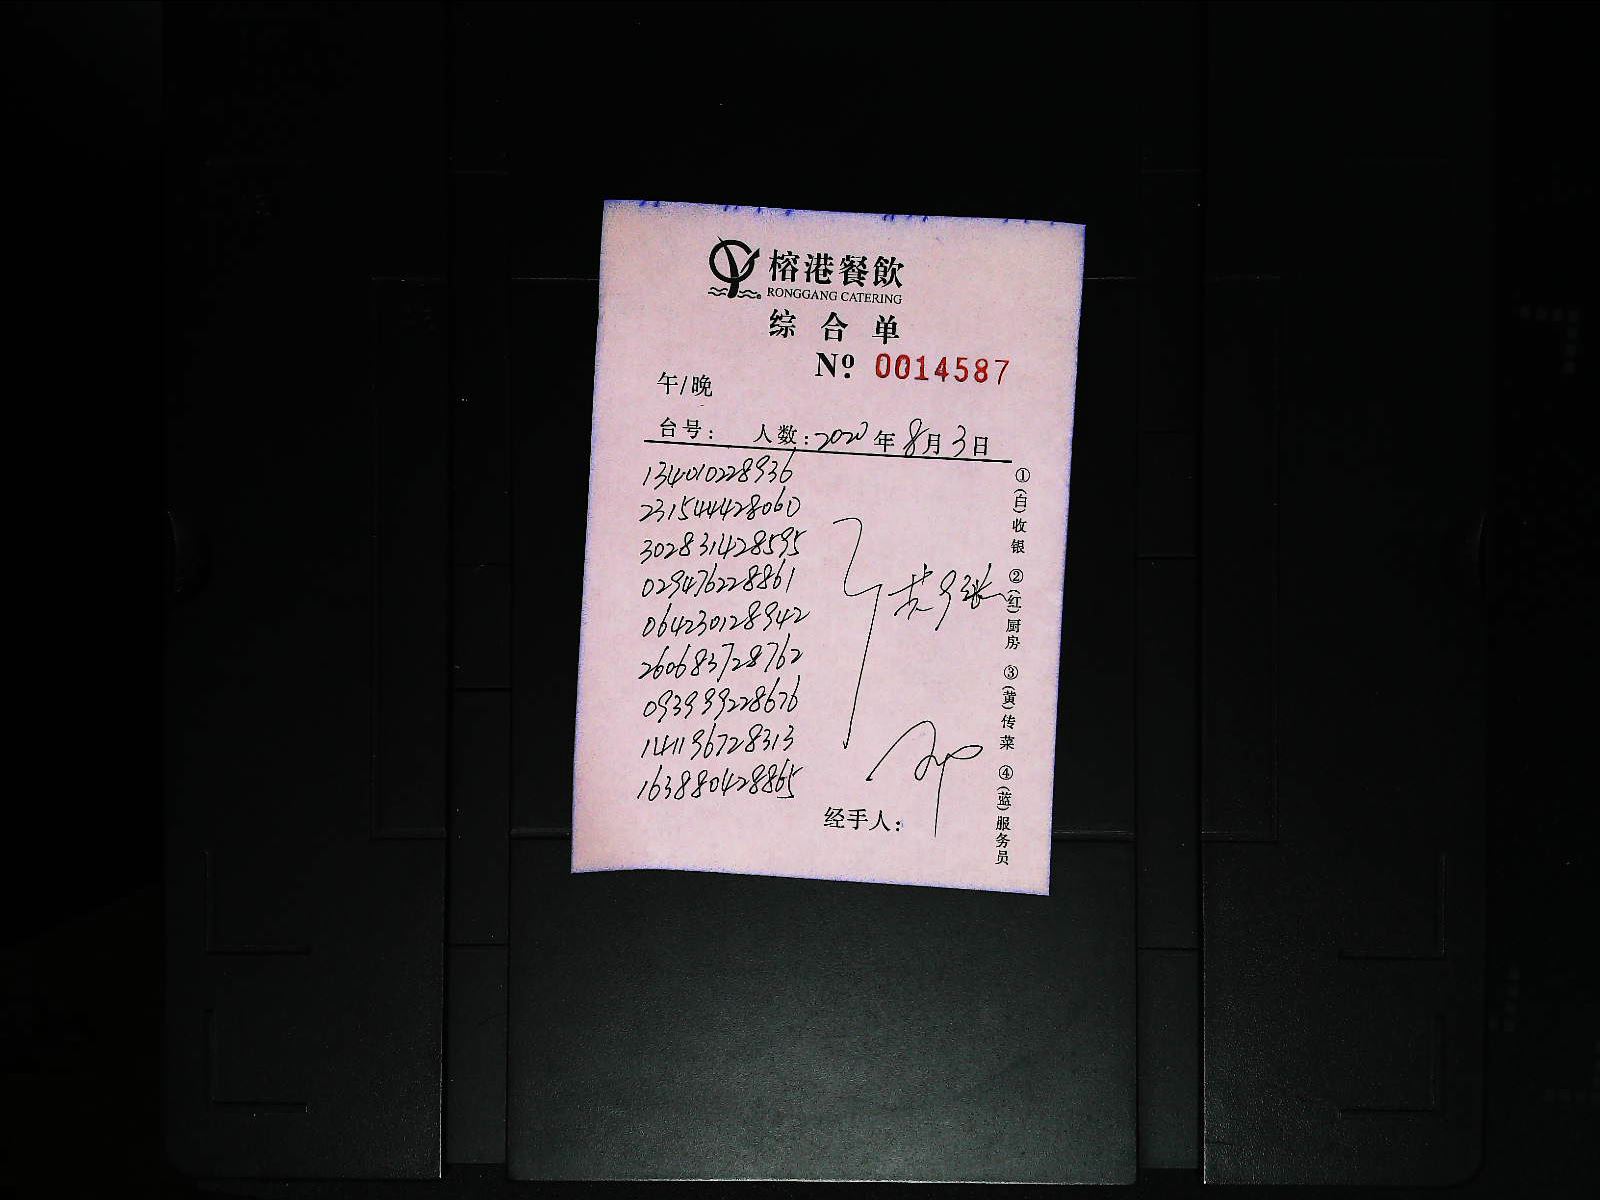 榕港餐飲
RONGGANG CATERING
综合单
Nº 0014587
午/晚
台号: 人数: 2020年8月3日
134010228936
231544428060
302831428595
029476228861
064230128942
260683728762
093999228676
141196728313
163880428865
经手人:
①(白)收银 ②(红)厨房 ③(黄)传菜 ④(蓝)服务员